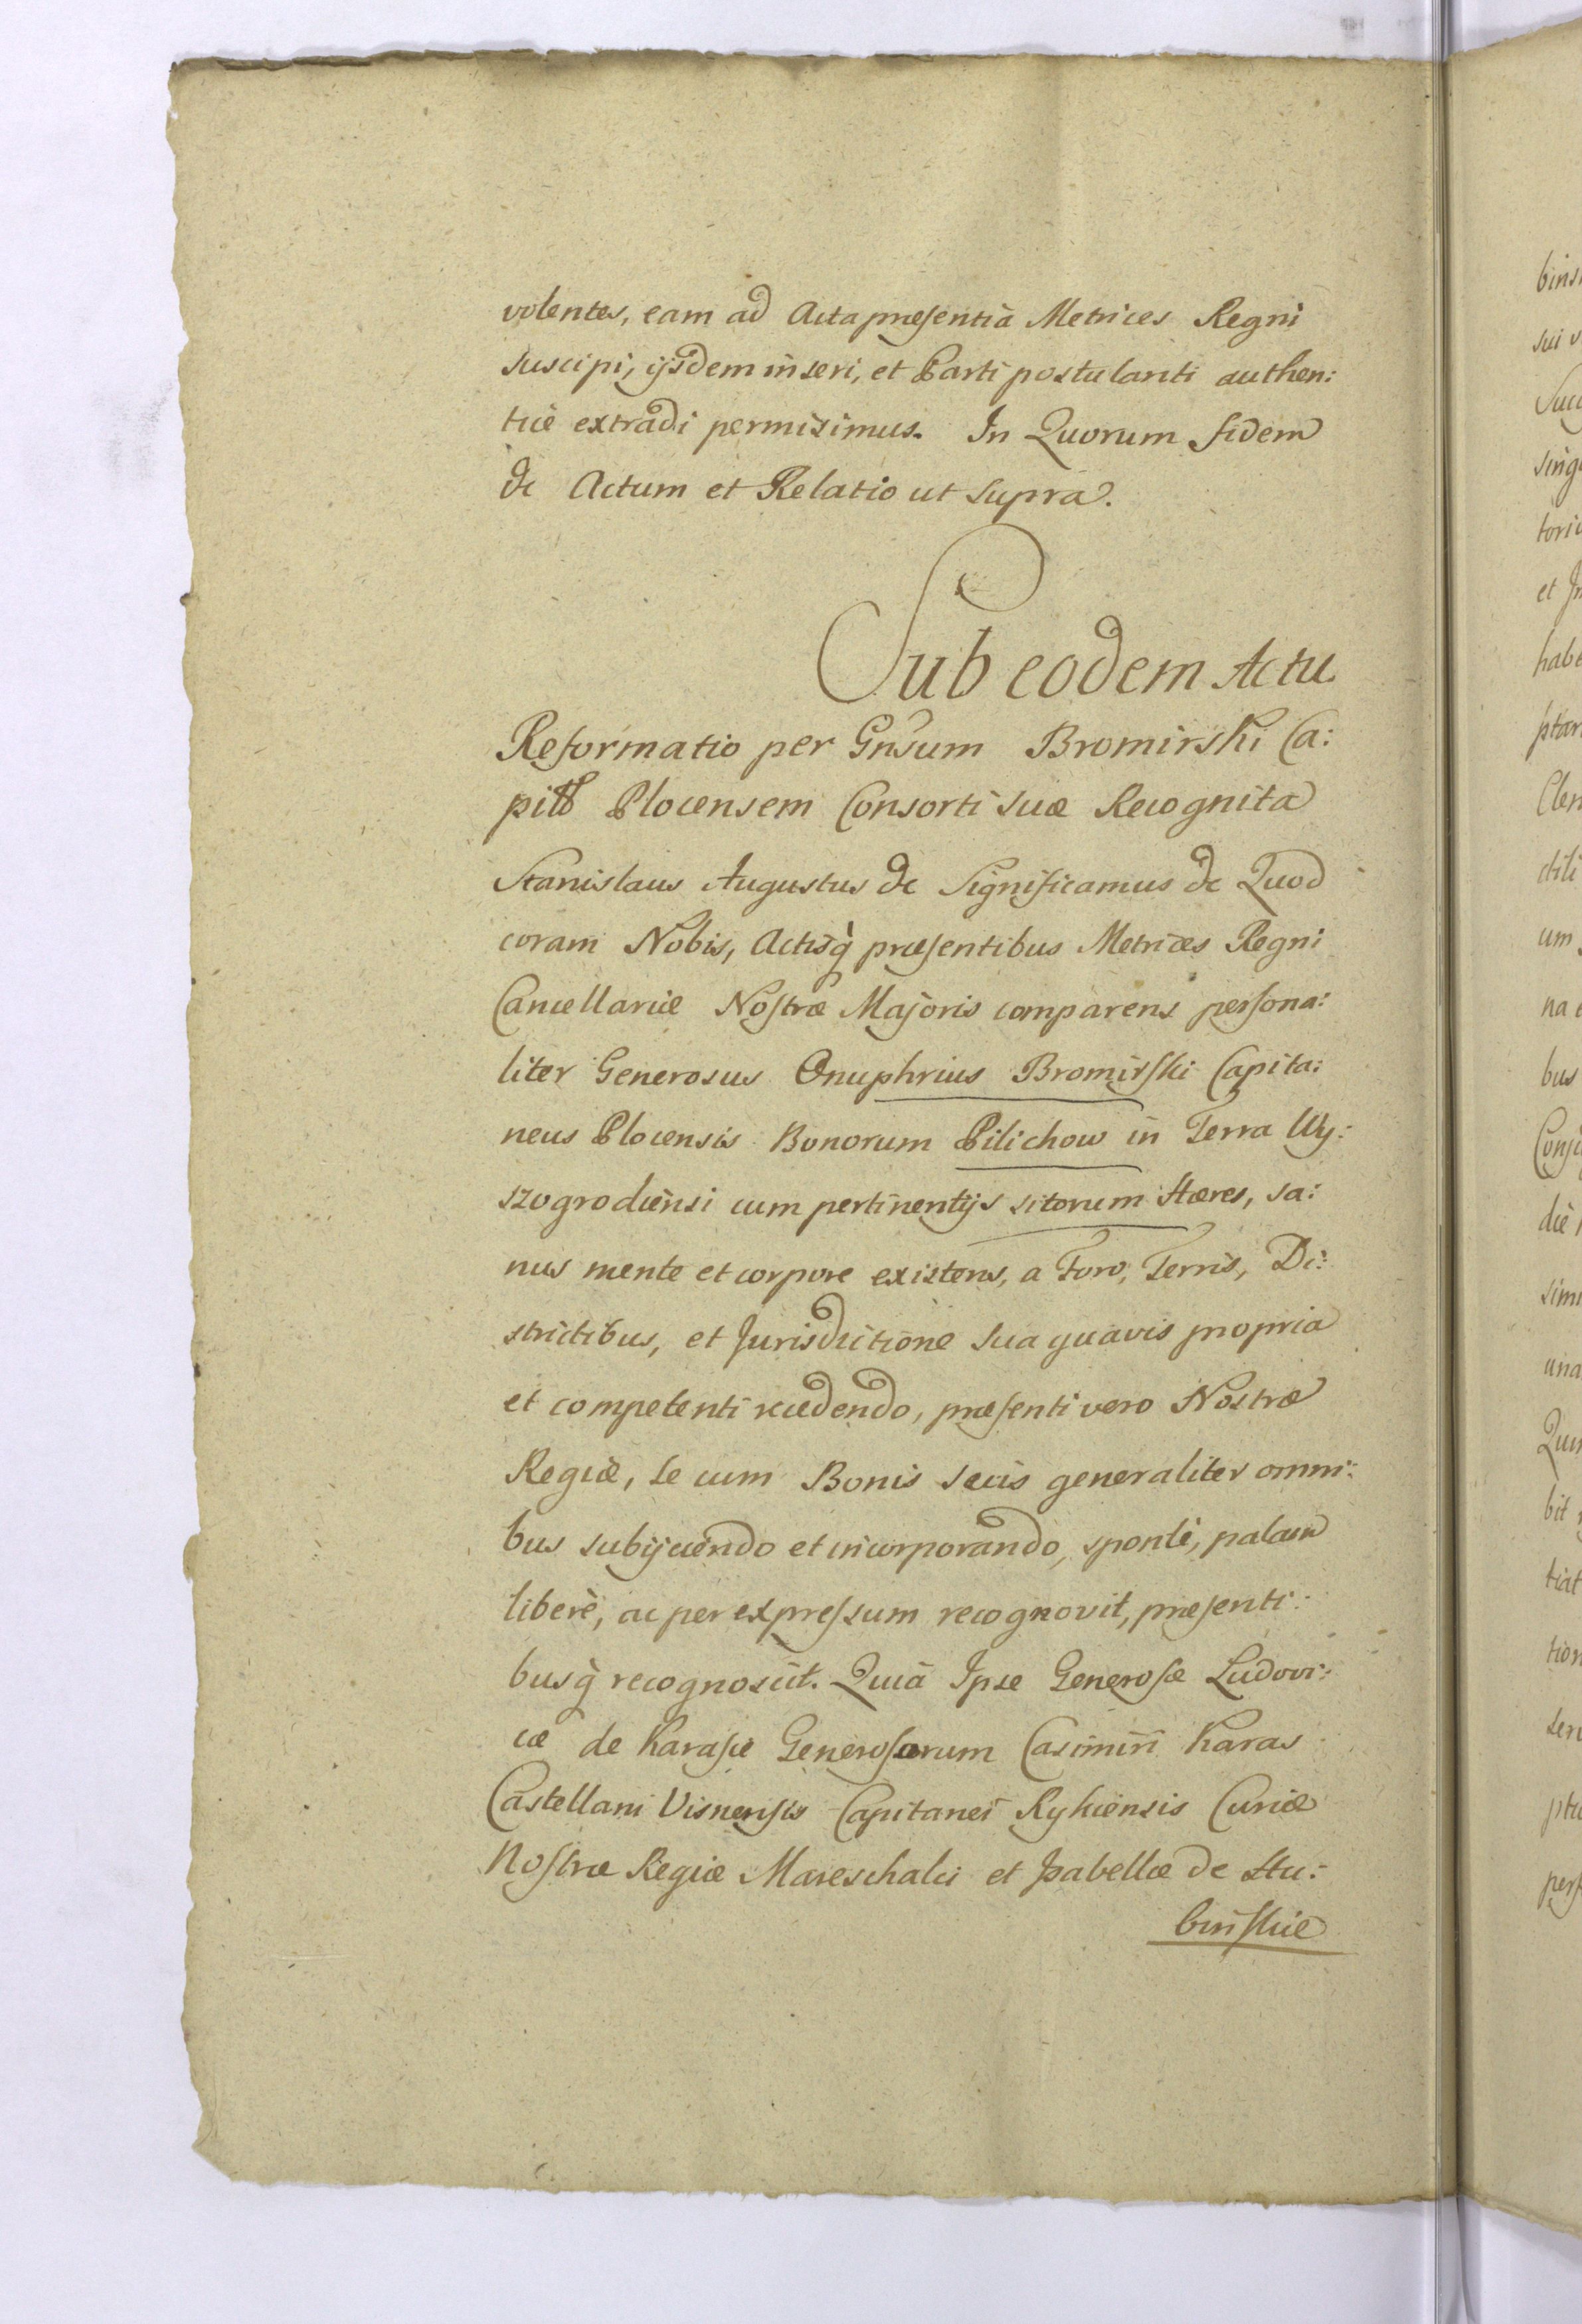 volentes, eam ad Acta præsentia Metrices Regni
suscipi, ijsdem inseri, et Parti postulanti authen:
tice extradi permisimus. In Quorum fidem
&c Actum et Relatio ut supra.
Sub eodem Actu
Reformatio per Gnsum Bromirski Ca:
pitt Plocensem Consorti suæ Recognita
Stanislaus Augustus &c Significamus &c Quod
coram Nobis, Actisq̀ præsentibus Metrices Regni
Cancellariæ Nostræ Majoris comparens persona:
liter Generosus Onuphrius Bromirski Capita:
neus Plocensis Bonorum Pilichow in Terra Wy:
szogrodiensi cum pertinentijs sitorum Hæres, sa:
nus mente et corpore existens, a Foro, Terris, Di:
strictibus, et Jurisdictione sua quavis propria
et competenti recedendo, præsenti vero Nostræ
Regiæ, se cum Bonis suis generaliter omni:
bus subijciendo et incorporando, sponte, palam
liberè, ac per expressum recognovit, præsenti:
busq̀ recognoscit. Quia Ipse Generosæ Ludovi:
cæ de Karasie Generosorum Casimiri Karas
Castellani Visnensis Capitanei Rykiensis Curiæ
Nostræ Regiæ Mareschalci et Isabellæ de Hu:
binskie
bins
sui v
Succ
sing
toric
et In
habe
ptar
Clen
dili
um
na
bus
Conj
die
simi
una
Qui
bit
tiat
tion
seri
ptu
pers